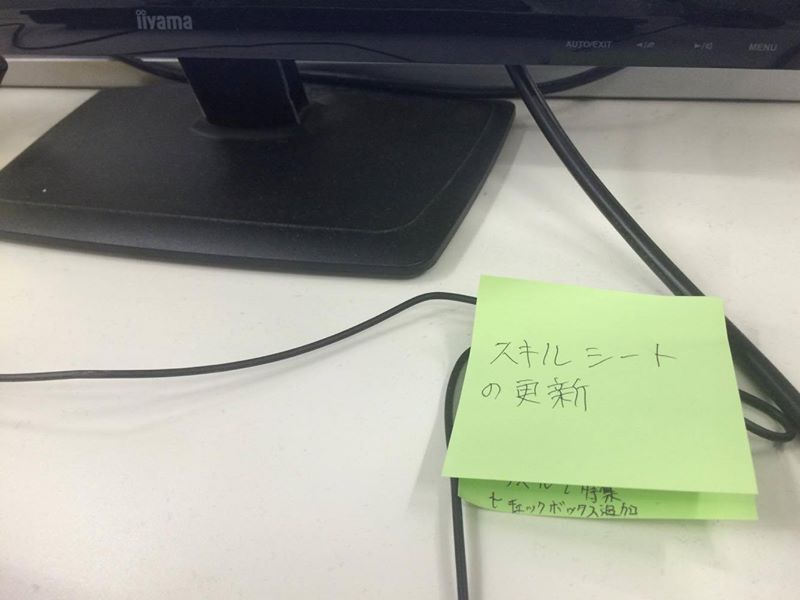 iiyama
AUTO/EXIT
MENU
スキルシート
の更新
チェックボックス追加